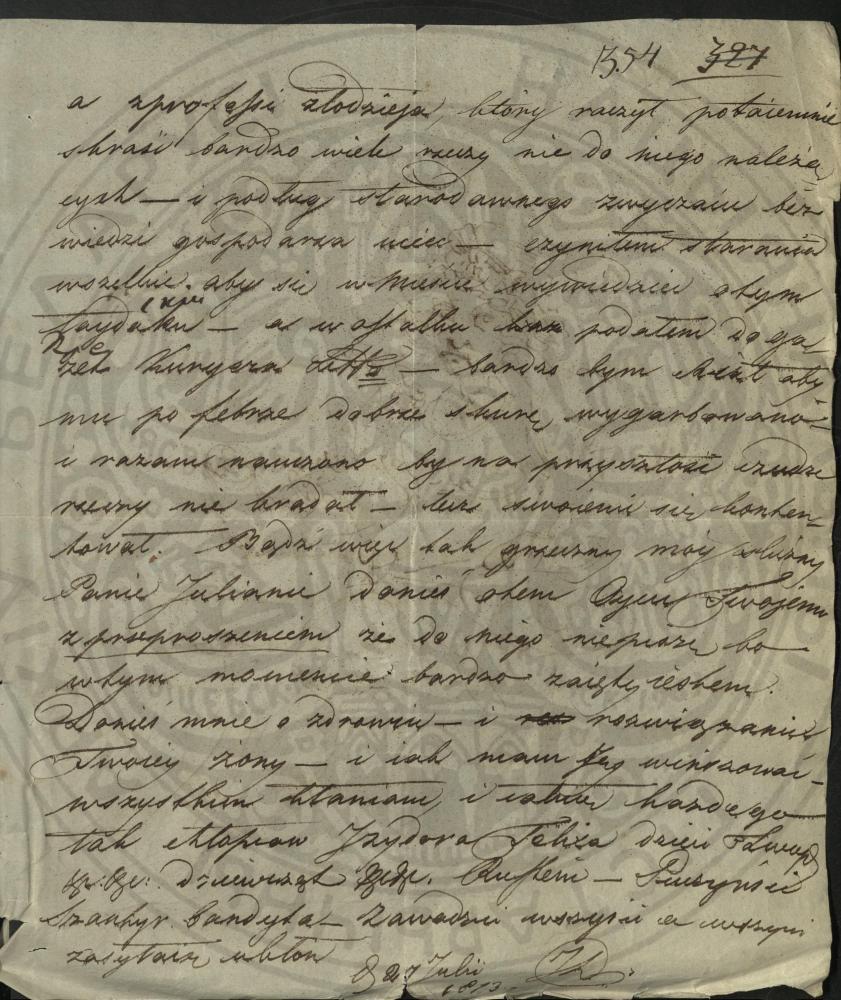 1354 327
a zprofessi złodzieja, który raczył potaiemnie
skraść bardzo wiele rzeczy nie do niego należą
cych — i podług starodawnego zwyczaiu bez
wiedzi gospodarza uciec — czyniłem starania
wszelkie. aby się w Mieście wywiedzieć otym
łaydaku — a w ostatku podałem do ga
zet Kuryera Litto — bardzo bym chciał aby
mu po febrze dobrze skurę wygarbowano —
i razam nauczono by na przyszłość cudze
rzeczy nie kradał — lecz swoiemi się konten
tował. Bądź więc tak grzeczny moy
Panie Julianie donieś otem Oycu Twojemu
z przeproszeniem że do niego niepiszę bo
wtym momencie bardzo zaięty iestem.
Donieś mnie o zdrowiu — i rozwiązaniu
Twoiey żony — i iak mam winszować —
wszystkim kłaniam, i całuię każdego
tak chłopcow Izydora Feliza dzieci
dziewcząt Rustem —
bandyta — Zawadzki wszyscy a wszyscy
D 27 Julii